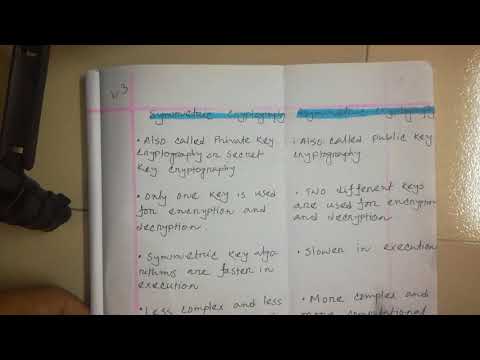 v3
Symmetric Cryptography
• Also called Private Key
Cryptography or Secret
Key Cryptography
• Only one key is used
for encryption and
decryption.
• Symmetric key algo-
rithms are faster in
execution
• Less complex and less
Asymmetric Cryptography
• Also called Public Key
Cryptography
• Two different keys
are used for encryption
and decryption
• Slower in execution
• More complex and
more computational